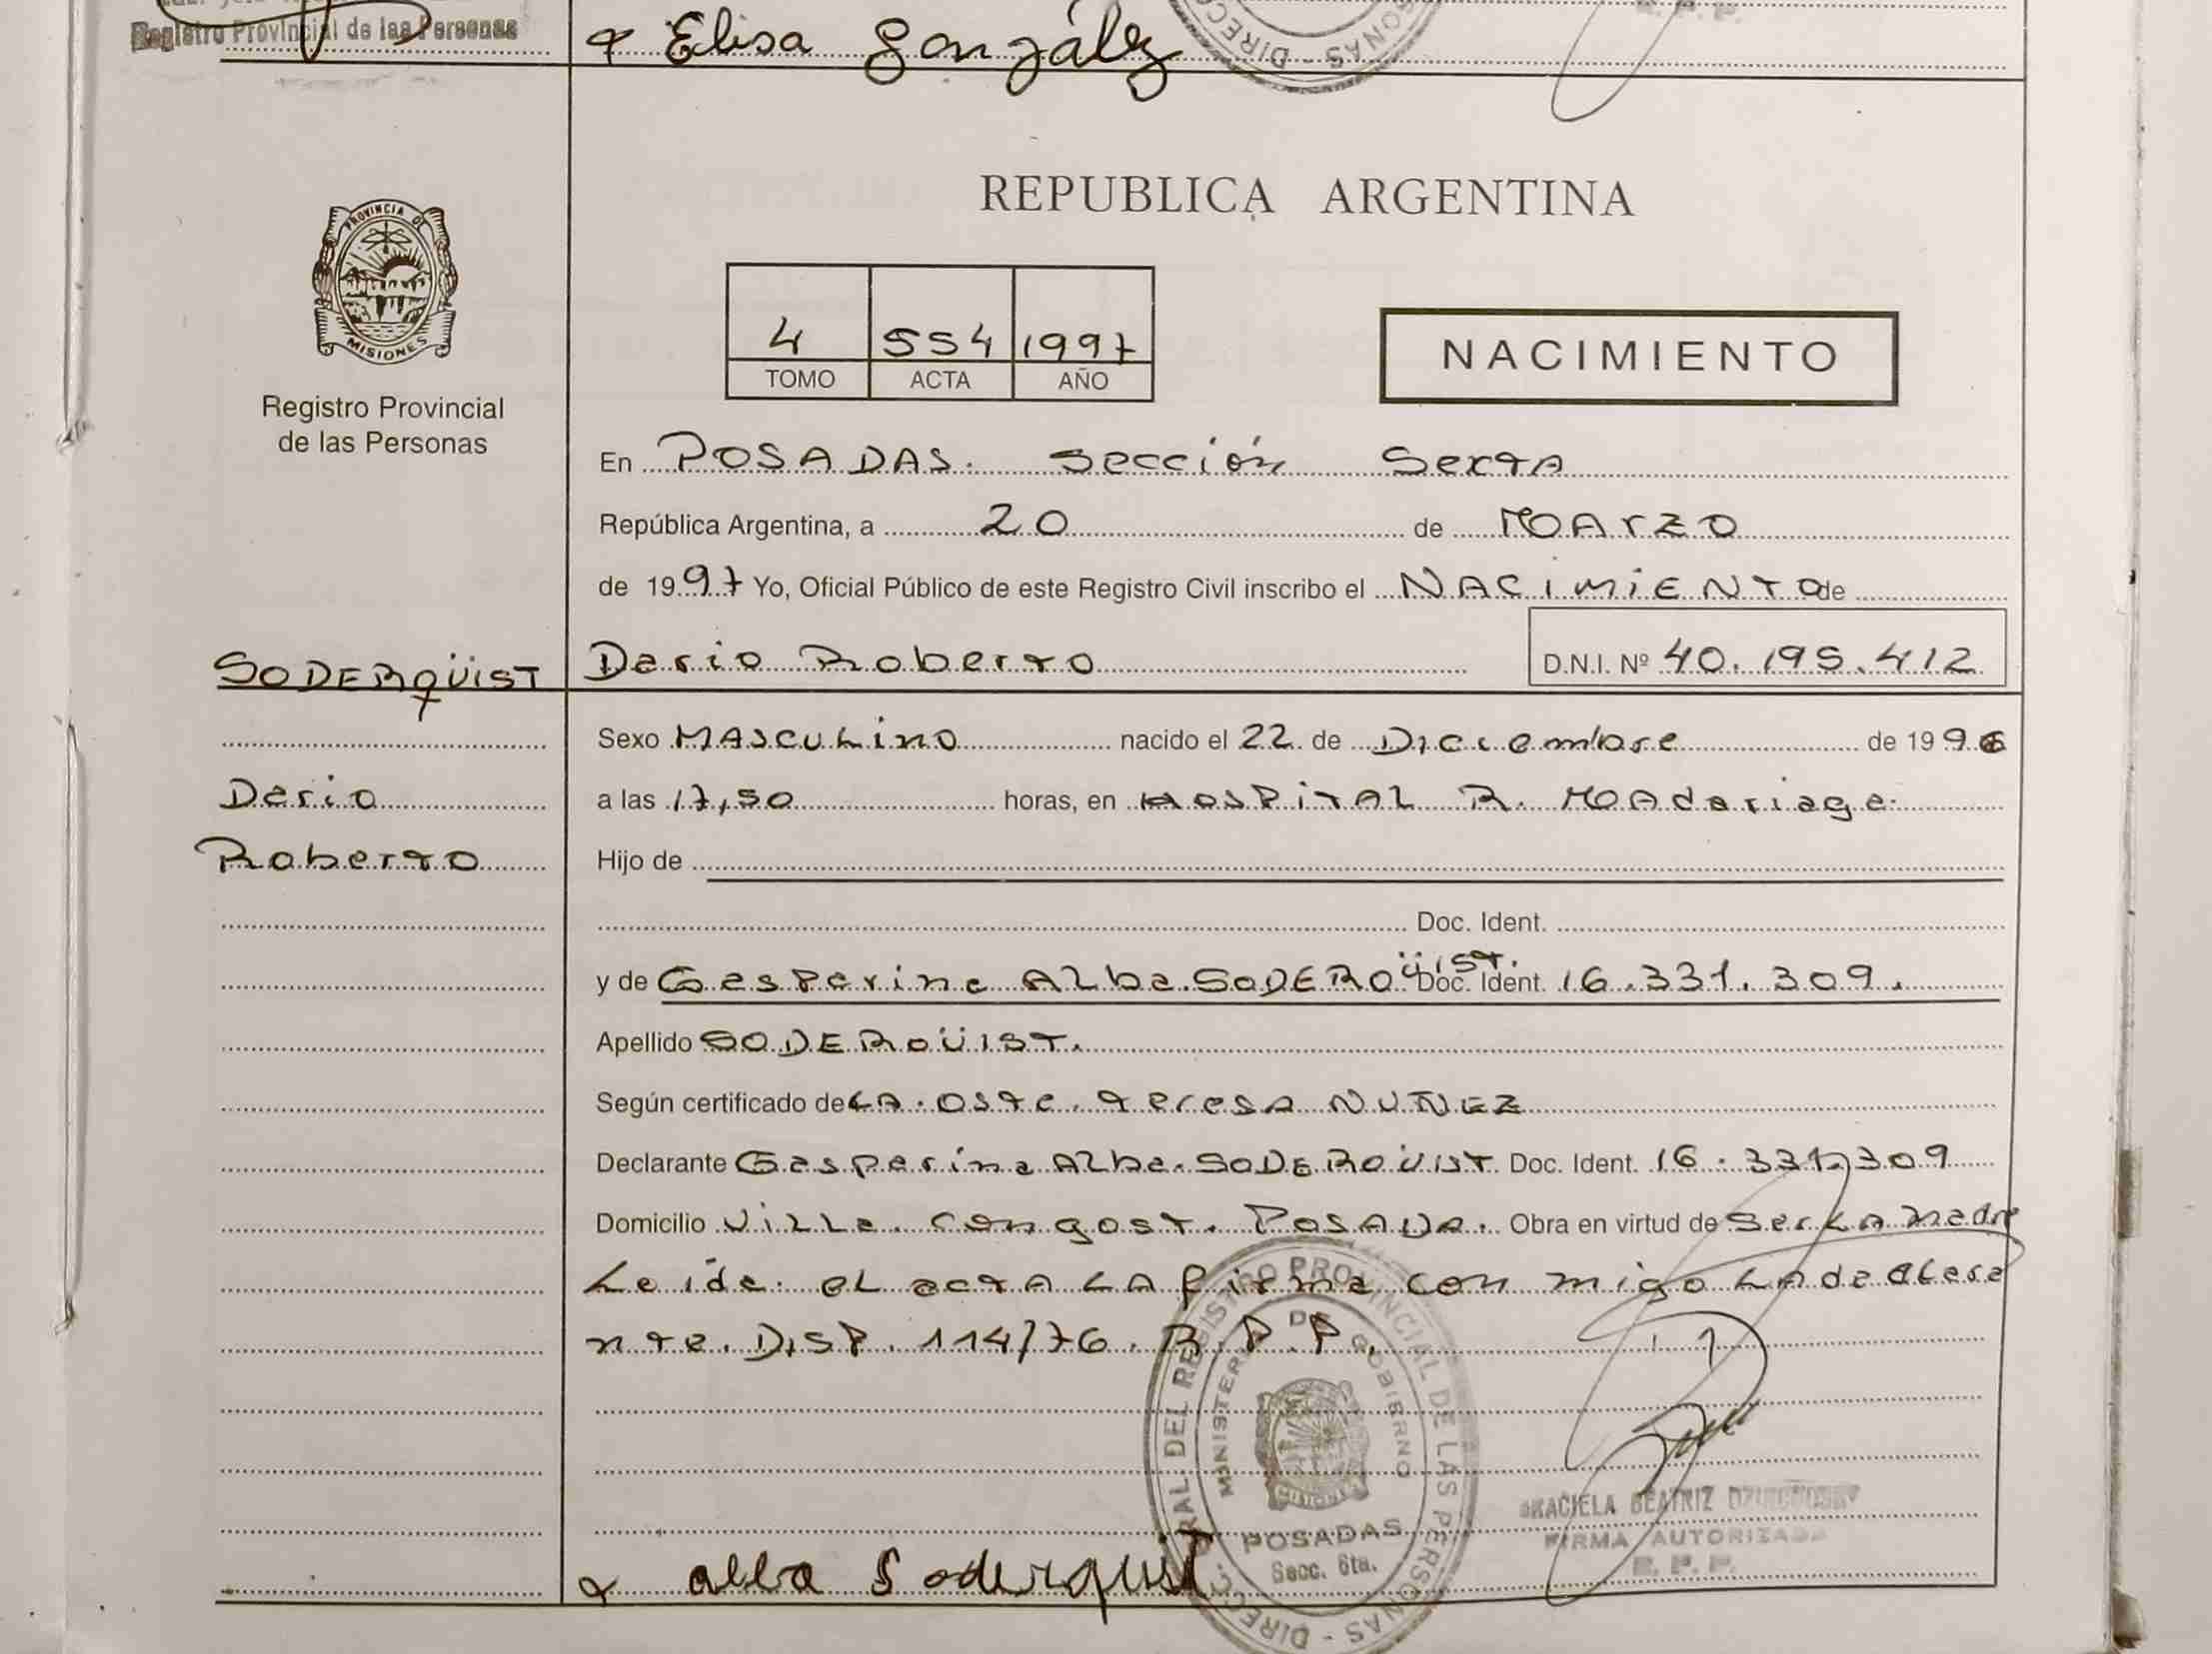 Registro Provincial de las Personas
Elisa González
REPUBLICA ARGENTINA
PROVINCIA DE
MISIONES
Registro Provincial
de las Personas
4 554 1997
TOMO ACTA AÑO
NACIMIENTO
En POSADAS. Sección Sexta
República Argentina, a 20 de MARZO
de 1997 Yo, Oficial Público de este Registro Civil inscribo el NACIMIENTO de
SODERQÜIST Dario Roberto D.N.I. Nº 40.195.412
Sexo MASCULINO nacido el 22 de Diciembre de 1996
Dario a las 17,50 horas, en HOSPITAL R. MAdariaga.
Roberto Hijo de
Doc. Ident.
y de Gasparina Alba SODERQÜIST. Doc. Ident. 16.331.309.
Apellido SODERQÜIST.
Según certificado de LA. Oste. Teresa NUÑEZ
Declarante Gasparina Alba SODERQÜIST. Doc. Ident. 16.331.309
Domicilio Villa Congost. POSADA. Obra en virtud de Ser LA Madre
Leida el acta LA firma con migo LA declara
nte. DISP. 114/76. R.P.P.
DIRECC. GRAL DEL REGISTRO PROVINCIAL DE LAS PERSONAS
MINISTERIO DE GOBIERNO
POSADAS
Secc. 6ta.
GRACIELA BEATRIZ
FIRMA AUTORIZADA
R. P. P.
alba Soderquist